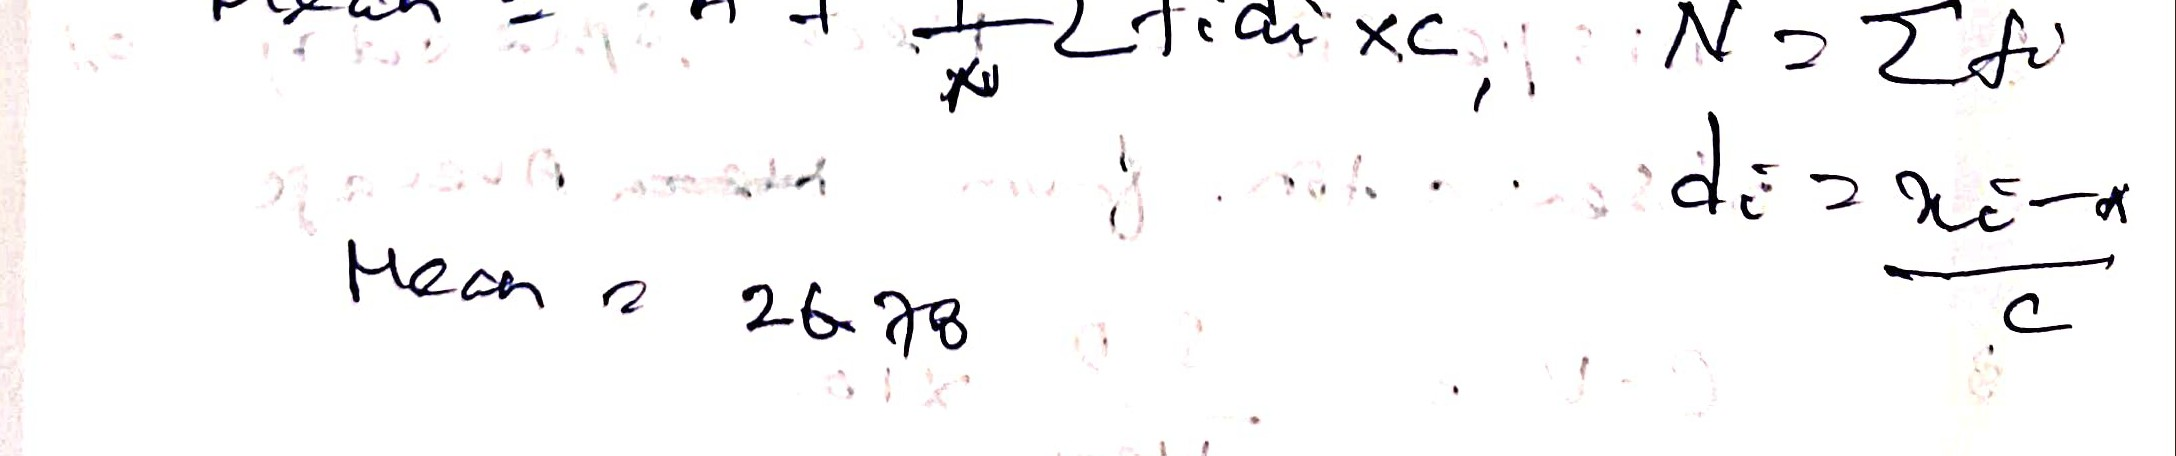 Mean = A + 1/N Σfidi ×C, N = Σfi
di = xi-A
/C
Mean = 26.78